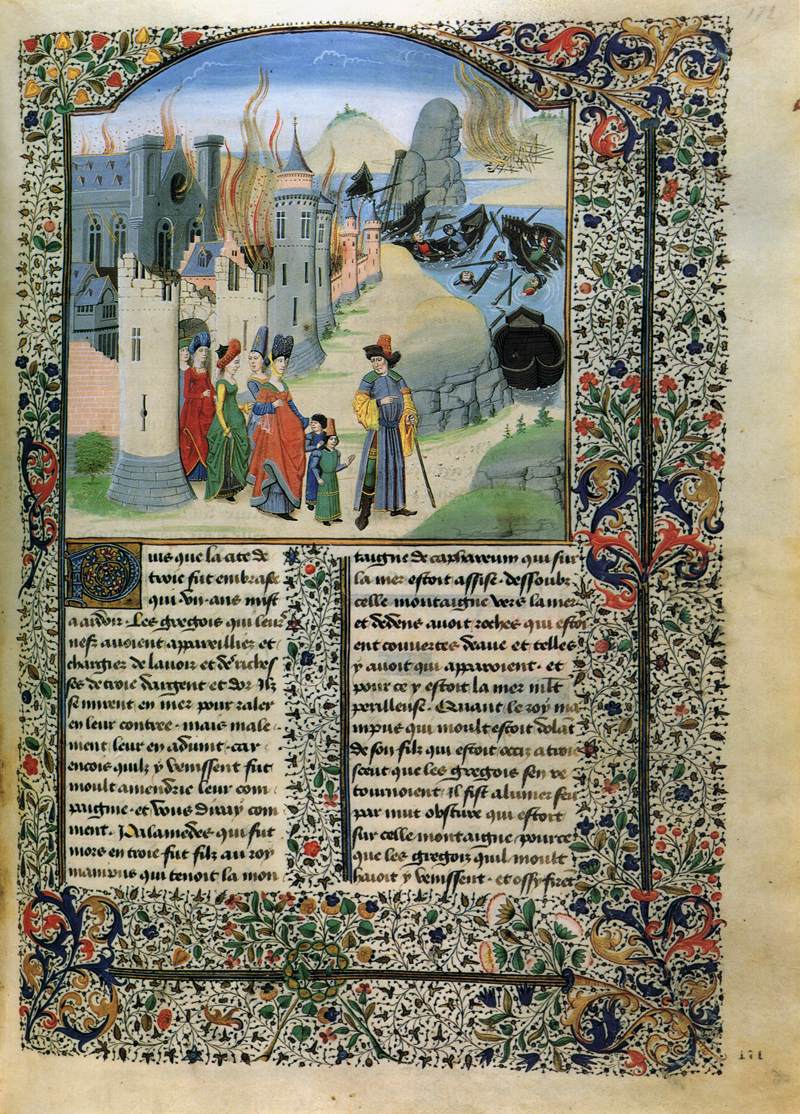 172
Puis que la cite de
troie fut embrasee
qui vn an mist
a ardoir. Les gregois qui leur
nefz auoient appareillier et
chargier de lauoir et des riches
ses de troie dargent et dor Ilz
se mirent en mer pour raler
en leur contree. mais male
ment leur en aduint. car
encois quilz y venissent fut
moult amendrie leur com
paignie. et vous diray com
ment. Palamedes qui fut
mors en troie fut filz au roy
mampus qui tenoit la mon
taigne de caphareum qui sur
la mer estoit assise. dessoubz
celle montaigne vers la mer
et dedens auoit roches qui estoi
ent couuertes deaue et telles
y auoit qui apparoient. et
pour ce y estoit la mer mlt
perilleuse. Quant le roy ma
mpus qui moult estoit dolāt
de son filz qui estoit occiz a troie
sceut que les gregois sen re
tournoient il fist alumer feu
par nuit obscure qui estoit
sur celle montaigne. pource
que les gregois quil moult
haioit y venissent. et ossy firēt
171